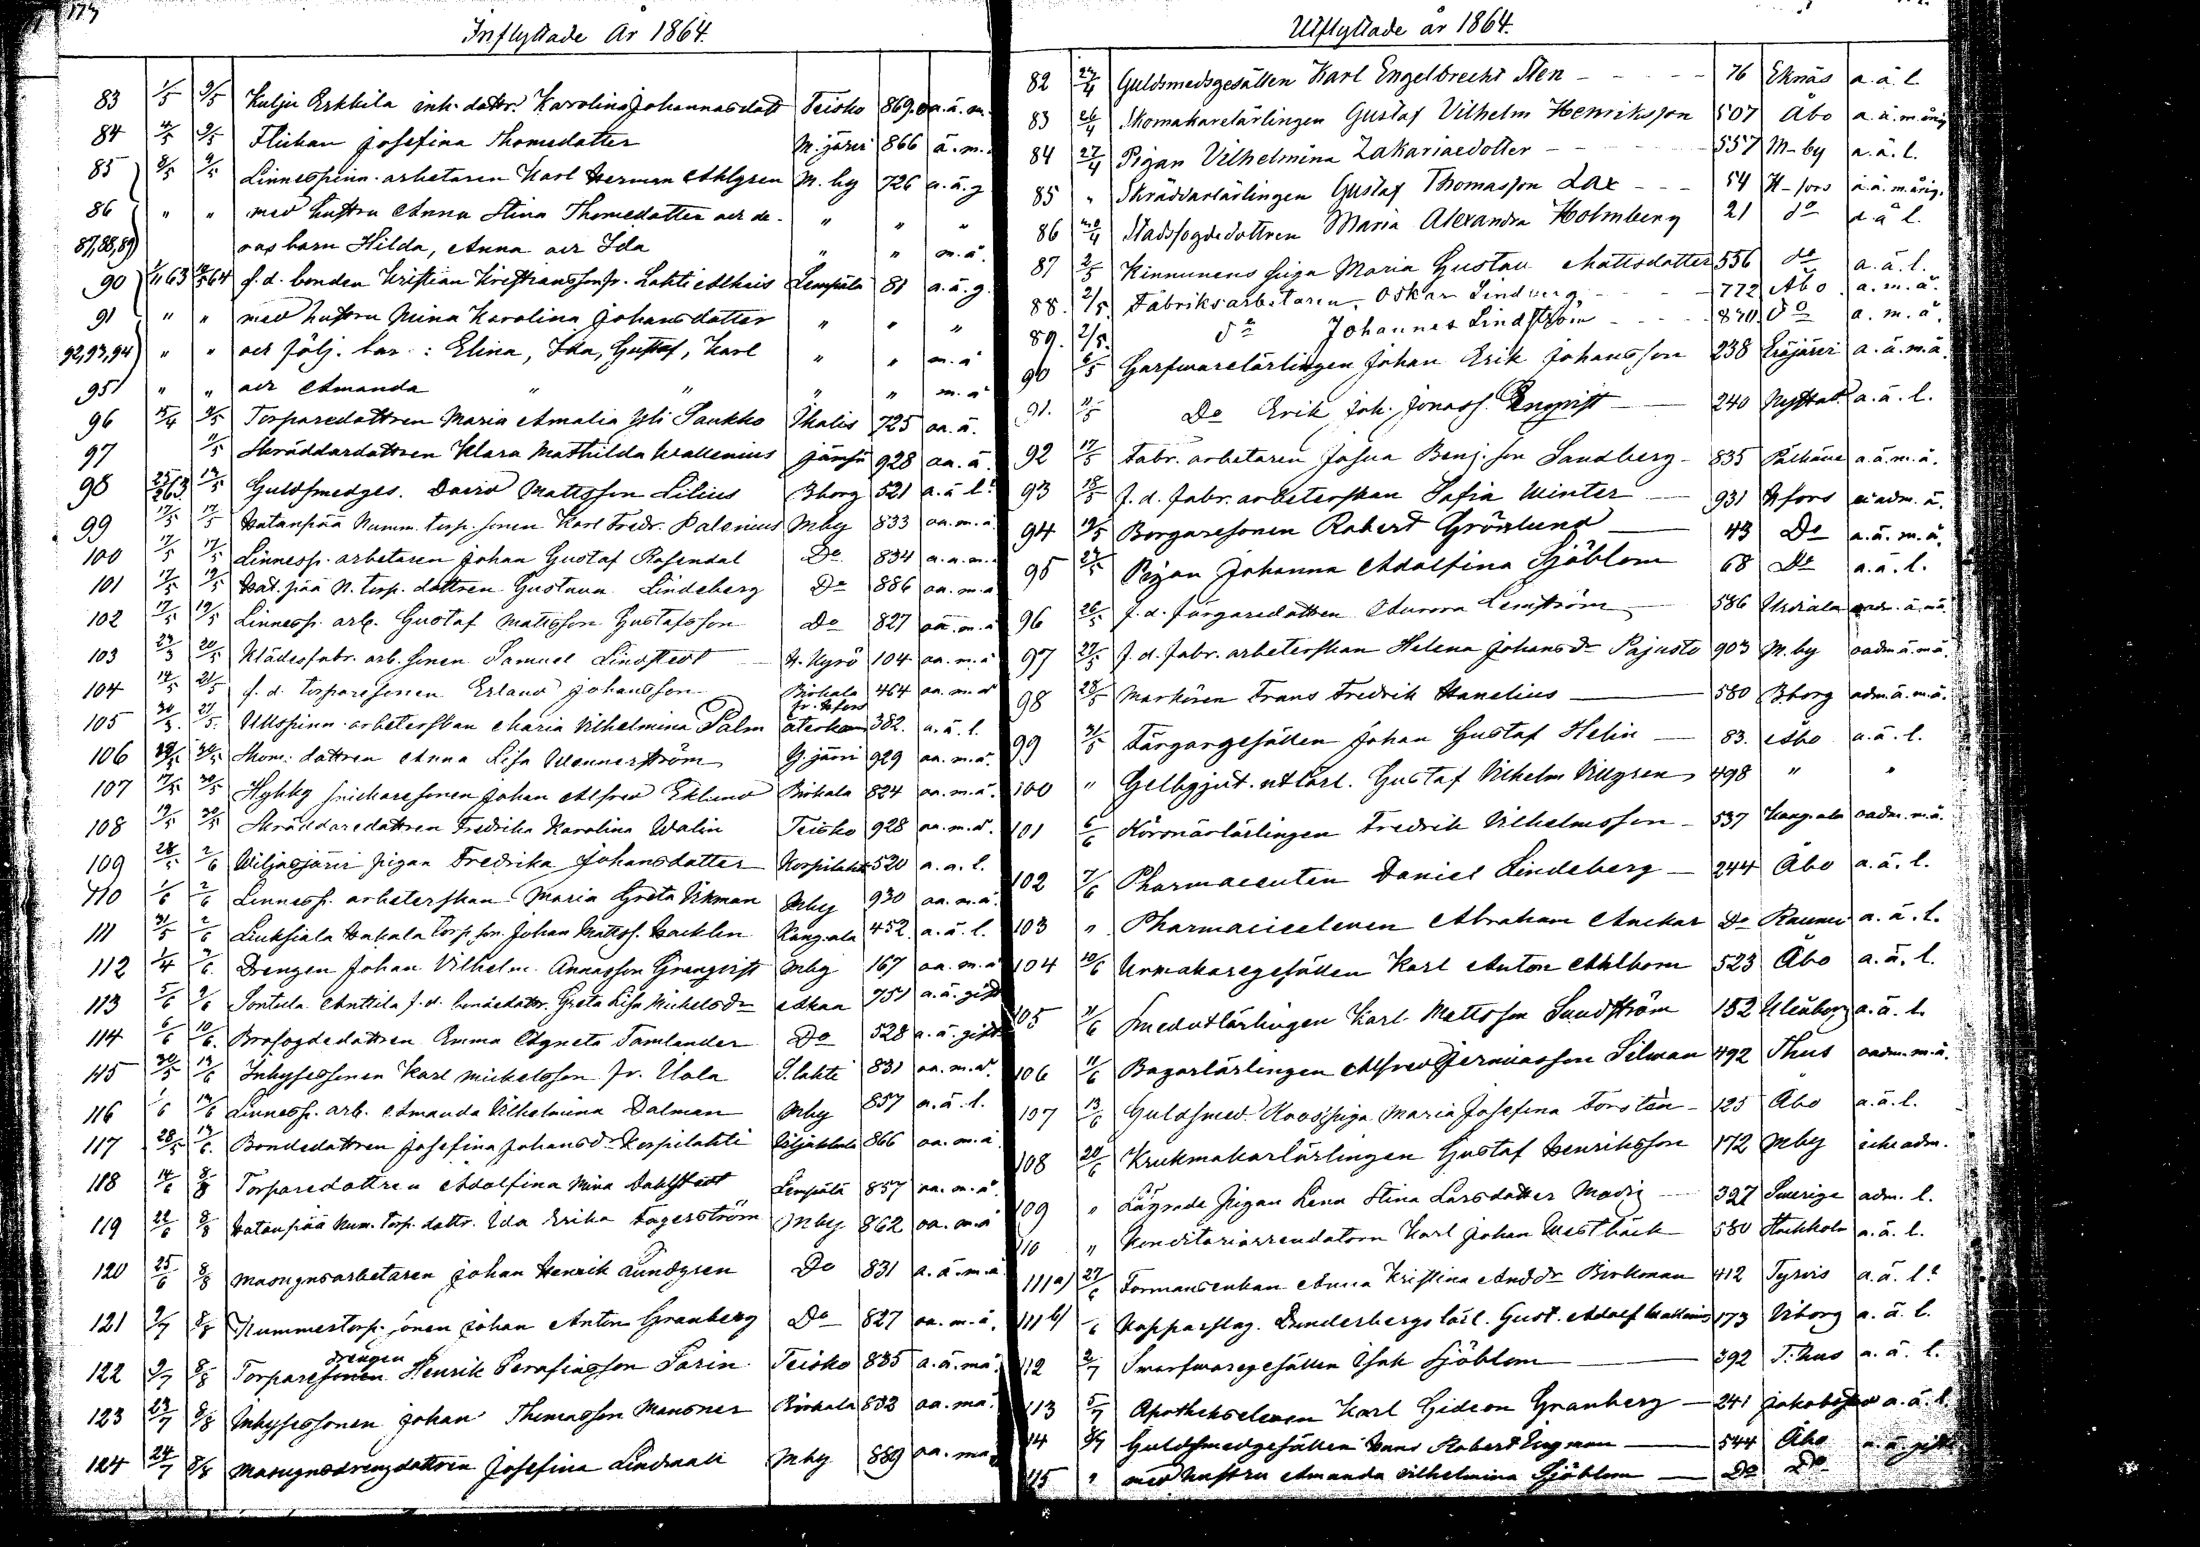 173
Inflyttade År 1864.
83 1/5 9/5 Kulju Erkkilä inh. dottr. Karolina Johannasdott Teisko 869 oa.ä.m.
84 4/5 9/5 Flickan Josefina Thomedotter M.järvi 866 ä.m.
85 9/5 9/5 Linnespinn. arbetaren Karl Herman Ahlgren M.by 726 a.ä.g
86 " " med hustru Anna Stina Thomedotter och de- " " "
87,88,89 ras barn Hilda, Anna och Ida " " m.ä.
90 63 64 f.d. bonden Kristian Kristiansson fr. Lahti Alhais Lempäla 81 a.ä.g.
91 " " med hustru Mina Karolina Johansdotter " " "
92,93,94 " " och följ. bar: Elina, Ida, Gustaf, Karl " " m.ä
95 " " och Amanda " " " " m.ä
96 15/4 9/5 Torparedottren Maria Amalia Yli Saukko Ikalis 725 oa.ä.
97 11/5 Skräddardottren Klara Mathilda Wallenius Jämsä 928 oa.ä.
98 17/5 Guldsmedges. David Mattsson Lilius Bborg 521 a.ä l.
99 17/5 17/5 Hatanpää Numm. torp. sonen Karl Fredr. Palonius Mby 833 oa.m.ä
100 17/5 17/5 Linnesp. arbetaren Johan Gustaf Rosendal Do 834 a.a.m.
101 17/5 19/5 Hat.pää N. torp. dottren Gustava Lindeberg Do 886 oa.m.ä
102 17/5 19/5 Linnesp. arb. Gustaf Mattsson Gustafsson Do 827 oa.m.ä
103 23/3 20/5 Klädesfabr. arb. sonen Samuel Lindstedt T. Kyrö 104 oa.m.ä
104 14/5 21/5 f.d. torparesonen Erland Johansson Birkala 464 oa.m.ä
105 30/3 21/5 Ullspinn. arbeterskan Maria Vilhelmina Palm fr. Hfors återkom 382. a.ä.l.
106 30/5 Skom. dottren Anna Lisa Wennerström 929 oa.m.ä.
107 17/5 30/5 Hyhky snickaresonen Johan Alfred Eklund Birkala 824 oa.m.ä.
108 19/5 30/5 Skräddaredottren Fredrika Karolina Walin Teisko 928 oa.m.ä.
109 28/5 2/6 Wiljasjärvi pigan Fredrika Johansdotter Korpilaht 520 a.a.l.
110 1/6 2/6 Linnesp. arbeterskan Maria Greta Vikman Mby 930 oa.m.ä
111 31/5 2/6 Liuksiala Hakala torp. son Johan Mattss. Hacklin Kangasala 452 a.ä.l.
112 1/4 2/6 Drengen Johan Vilhelm Annasson Granqvist Mby 167 oa.m.ä
113 5/6 9/6 Sontula Anttila f.d. bondedottr. Greta Lisa Mickelsdr 751 a.ä.gift
114 6/6 10/6 Brofogdedottren Emma Agneta Tamlander Do 528 a.ä.gift
115 30/5 13/6 Inhysessonen Karl Mickelsson fr. Uola S.lahti 831 oa.m.ä.
116 1/6 13/6 Linnesp. arb. Amanda Vilhelmina Dalman Mby 857 a.ä.l.
117 28/5 13/6 Bondedottren Josefina Johansdr Korpilahti 866 oa.m.ä
118 14/6 8/8 Torparedottren Adolfina Mina Dahlstedt Lempäla 857 oa.m.ä.
119 22/6 8/8 Hatanpää Num. torp. dottr. Ida Erika Fagerström Mby 862 oa.m.ä
120 25/6 8/8 Masugnsarbetaren Johan Henrik Lundgren Do 831 a.ä.m.ä
121 9/7 8/8 Nummestorp. sonen Johan Anton Granberg Do 827 oa.m.ä.
122 9/7 8/8 Torparesonen drengen Henrik Serafinsson Sarin Teisko 835 a.ä.mä
123 23/7 8/8 Inhysessonen Johan Thomasson Mansner Birkala 832 oa.mä.
124 24/7 8/8 Masugnsdrengdottren Josefina Lindvall Mby 889 oa.mä
Utflyttade år 1864.
82 24/4 Guldsmedsgesällen Karl Engelbrecht Sten - - - - 76 Eknäs a.ä l.
83 26/4 Skomakarelärlingen Gustaf Vilhelm Henriksson 507 Åbo a.ä.m.ärig
84 27/4 Pigan Vilhelmina Zakariaedotter - - - 557 M-by a.ä.l.
85 " Skräddarlärlingen Gustaf Thomasson Lax - - - 54 H-fors a.ä.m.ärig.
86 30/4 Stadsfogdedottren Maria Alexandra Holmberg 21 do a.ä l.
87 2/5 Kinnunens piga Maria Gustava Mattsdotter 556 do a.ä.l.
88. 2/5. Fabriksarbetaren Oskar Lindberg - - - 772 Åbo a.m.ä.
89. 2/5. do Johannes Lindström - - - 870. do a.m.ä.
90 6/5 Garfvarelärlingen Johan Erik Johansson 238 Eräjärvi a.ä.m.ä.
91. 11/5 Do Erik Joh. Jonass. Engqvist — 240 Nystad a.ä.l.
92 17/5 Fabr. arbetaren Josua Benj.son Sandberg - 835 Pälkäne a.ä.m.ä.
93 18/5 f.d. fabr. arbeterskan Sofia Winter — 931 Hfors ei adm. ä.
94 19/5 Borgaresonen Robert Grönlund — 43 Do a.ä.m.ä.
95 24/5 Pigan Johanna Adolfina Sjöblom 68 Do a.ä.l.
96 26/5 f.d. färgaredottren Aurora Lemström — 586 Urdiala oadm.ä.mä.
97 27/5 f.d. fabr. arbeterskan Helena Johansdr Pajusto 903 M.by oadm ä.mä.
98 28/5 Markören Frans Fredrik Hanelius — 580 B.borg adm.ä.m.ä.
99 31/5 Färgargesällen Johan Gustaf Helin — 83. Åbo a.ä.l.
100 " Gelbgjut. utlärl. Gustaf Vilhelm Villgren 498 " "
101 6/6 Körsnärlärlingen Fredrik Vilhelmsson - 537 Kang.ala oadm.m.ä.
102 7/6 Pharmaceuten Daniel Lindeberg — 244 Åbo a.ä.l.
103 " Pharmacieeleven Abraham Anckar Do Raumo a.ä.l.
104 10/6 Urmakaregesällen Karl Anton Ahlbom 523 Åbo a.ä.l.
105 11/6 Smedutlärlingen Karl Mattsson Sundström 152 Uleåborg a.ä.l.
106 11/6 Bagarlärlingen Alfred Jeremiasson Silwan 492 Thus oadm.m.ä.
107 13/6 Guldsmed. Roos's piga Maria Josefina Forstén - 125 Åbo a.ä.l.
108 20/6 Krukmakarlärlingen Gustaf Henriksson 172 Mby icke adm.
109 " Lägrade pigan Lena Stina Larsdotter Madig — 327 Sverige adm. l.
110 " Konditoriarrendatorn Karl Johan Westbäck 580 Stockholm a.ä.l.
111 a) 27/6 Formansenkan Anna Kristina Anddr Birkman 412 Tyrvis a.ä.l.
111 b) /6 Kopparslag. Dunderbergs lärl. Gust. Adolf Wallenius 173 Viborg a.ä.l.
112 2/7 Svarfvaregesällen Isak Sjöblom — 392 T.hus a.ä.l.
113 5/7 Apothekseleven Karl Gideon Granberg — 241 Jakobstad a.ä.l.
114 8/7 Guldsmedgesällen Hans Robert Engman — 544 Åbo a.ä.gift
115 " med hustru Amanda Vilhelmina Sjöblom — Do Do